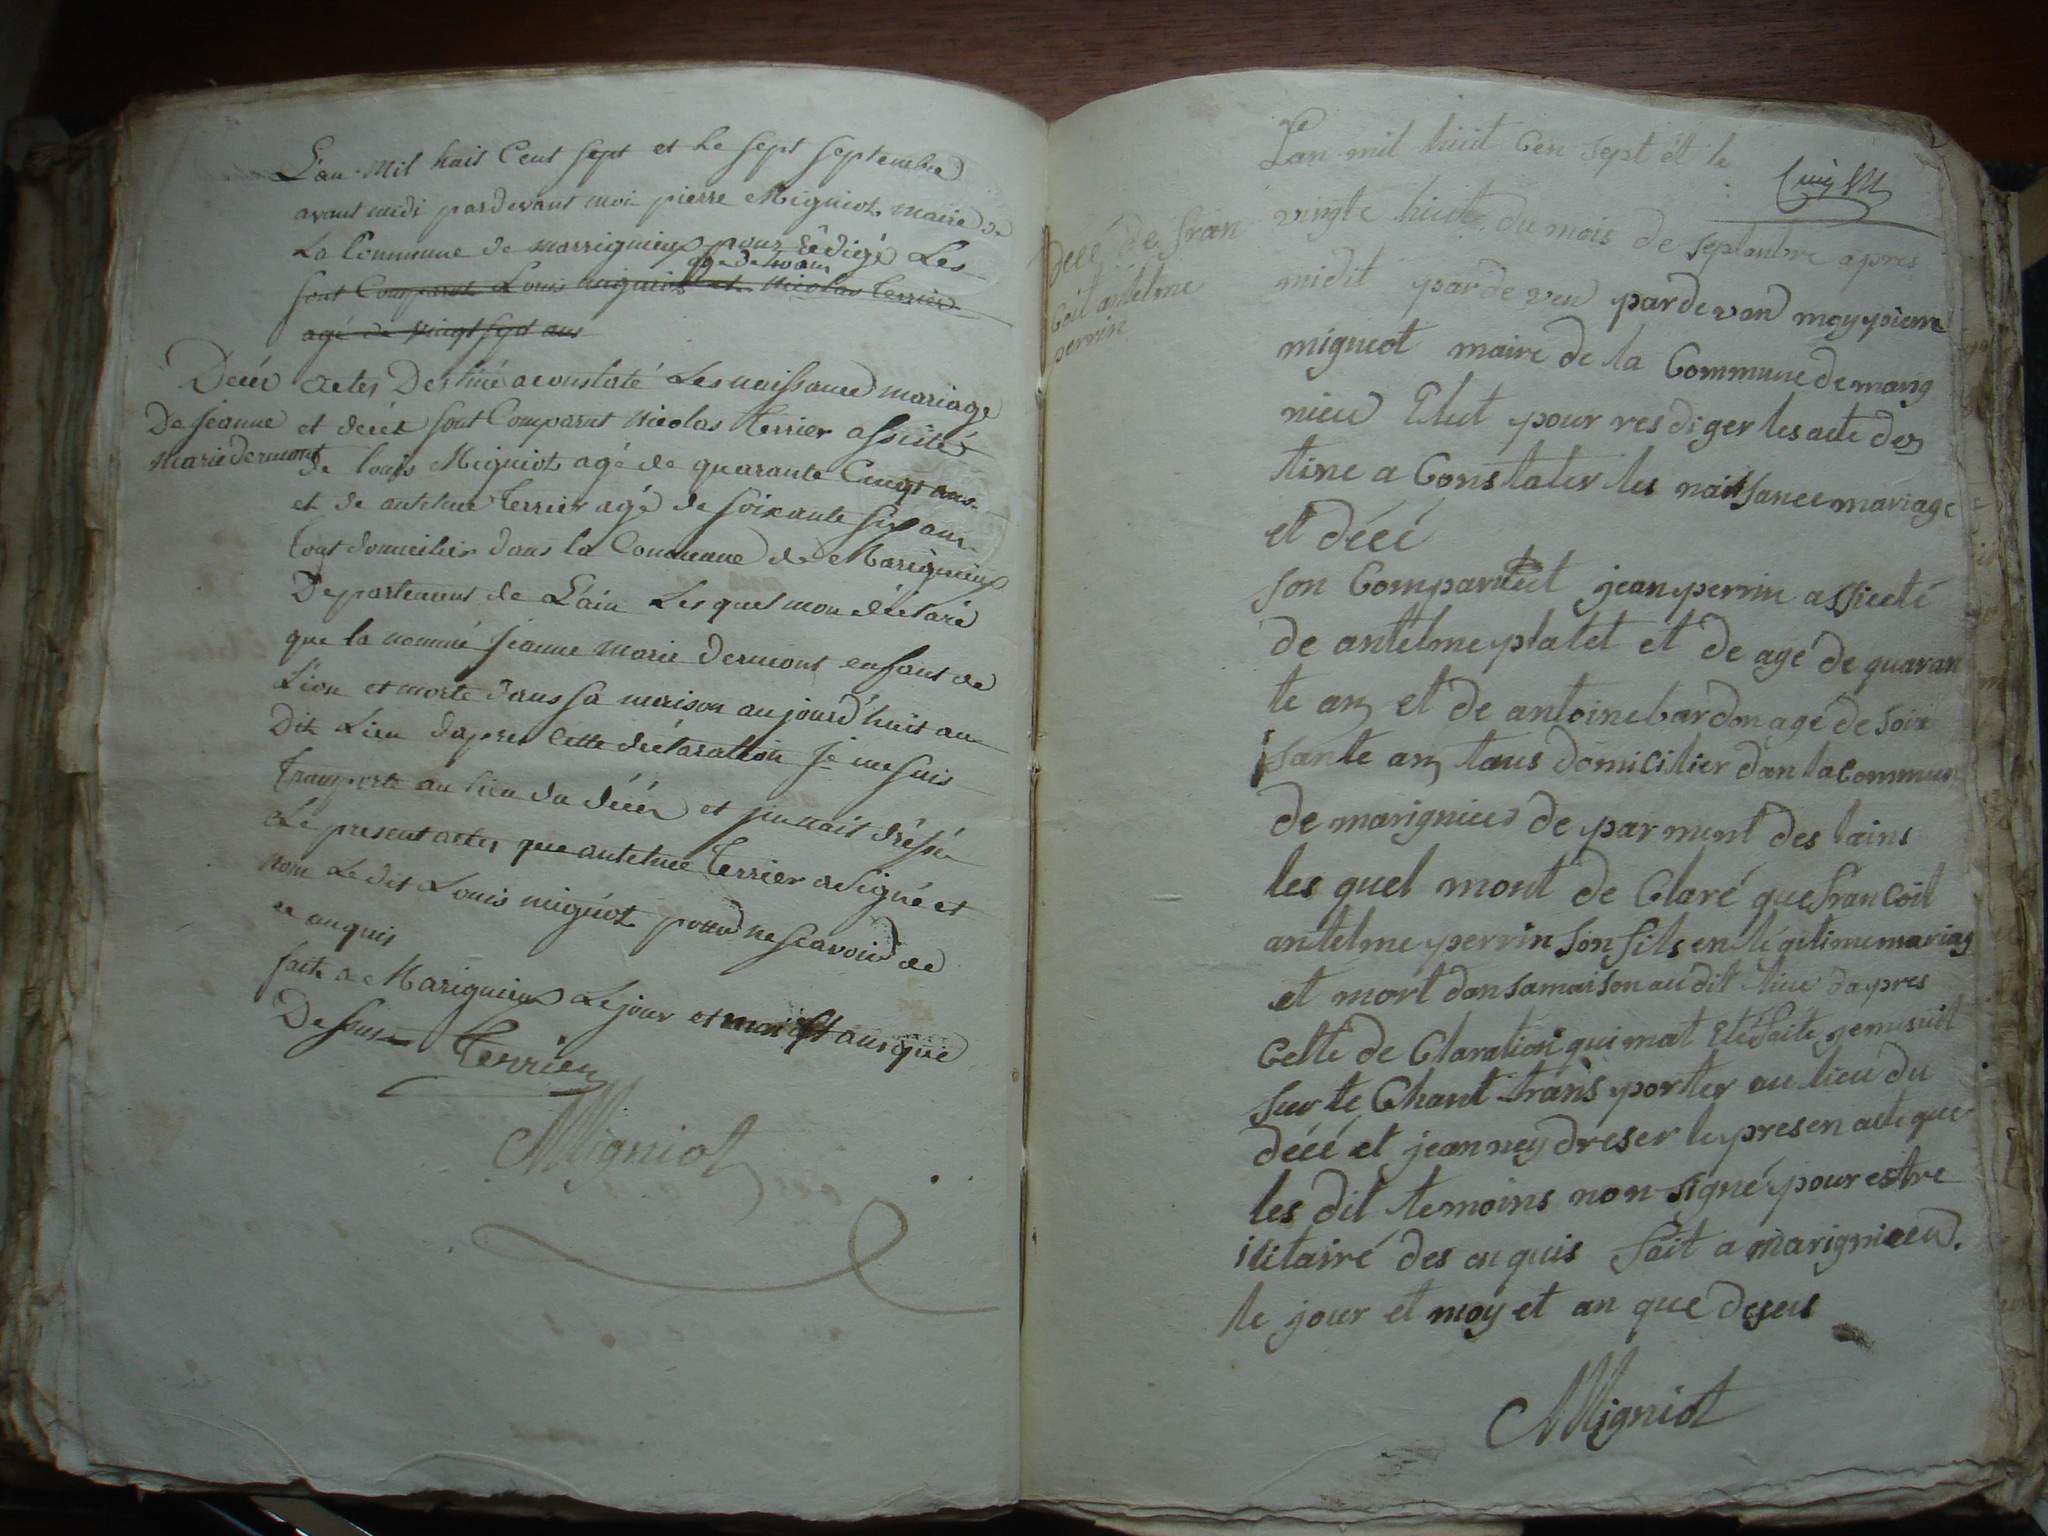 L'an Mil huit Cent sept et le sept septembre
avant midi pardevant moi pierre Migniot maire de
La Commune de marrignieux pour Rédigé Les
sont Comparut Louis migniot et Nicolas Terrier
agé de vingt sept ans
Décés
De jeanne
marie dermont
actes Destiné a constaté Les naissance mariage
et décés sont Comparut Nicolas Terrier assisté
de louis Migniot agé de quarante Cinq ans
et de antelme Terrier agé de soixante six ans
tout domicilier dans la Commune de Marignieux
Departement de L'ain Lesquel mon déclaré
que la nommé jeanne marie dermont enfant de
Lion et morte dans sa maison aujourd'huit au
Dit Lieu dapres cette déclarattion je me suis
transporté au lieu du décés et jen nait dréssé
Le present actes que antelme Terrier a signé et
non Le dit Louis migniot pour ne scavoir de
ce anquis
fait a Marignieux Le jour et mois et ans que
Dessus Terrier
Migniot
Lan mil huit Cen sept ét le
vingte huit du mois de septembre apres
midit par de ven par de van moy pierre
migniot maire de la Commune de marig
nieu Elut pour res diger les acte des
tine a Constater les naissance mariage
et décé
Décé de fran
Coil antelme
perrin
son Comparutut jean perrin assicté
de antelme platet et de agé de quaran
te an et de antoine bardon agé de soix
sante an tous domicilier dan la commune
de marignieu de par ment des lains
les quel mont de Claré que fran Coil
antelme perrin son fils en légitime mariag
et mort dan sa maison au dit lieu dapres
Cette de Claration qui mat Eté faite je me suit
sur le Chant trans porter au lieu du
décé et jean ney dreser le presen acte que
les dit temoins non signé pour estre
ilitairé des en quis fait a marignieeu.
le jour et moy et an que deseus
Migniot